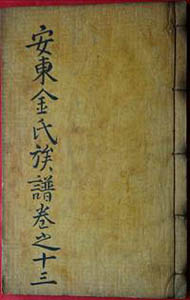 安東金氏族譜卷之十三